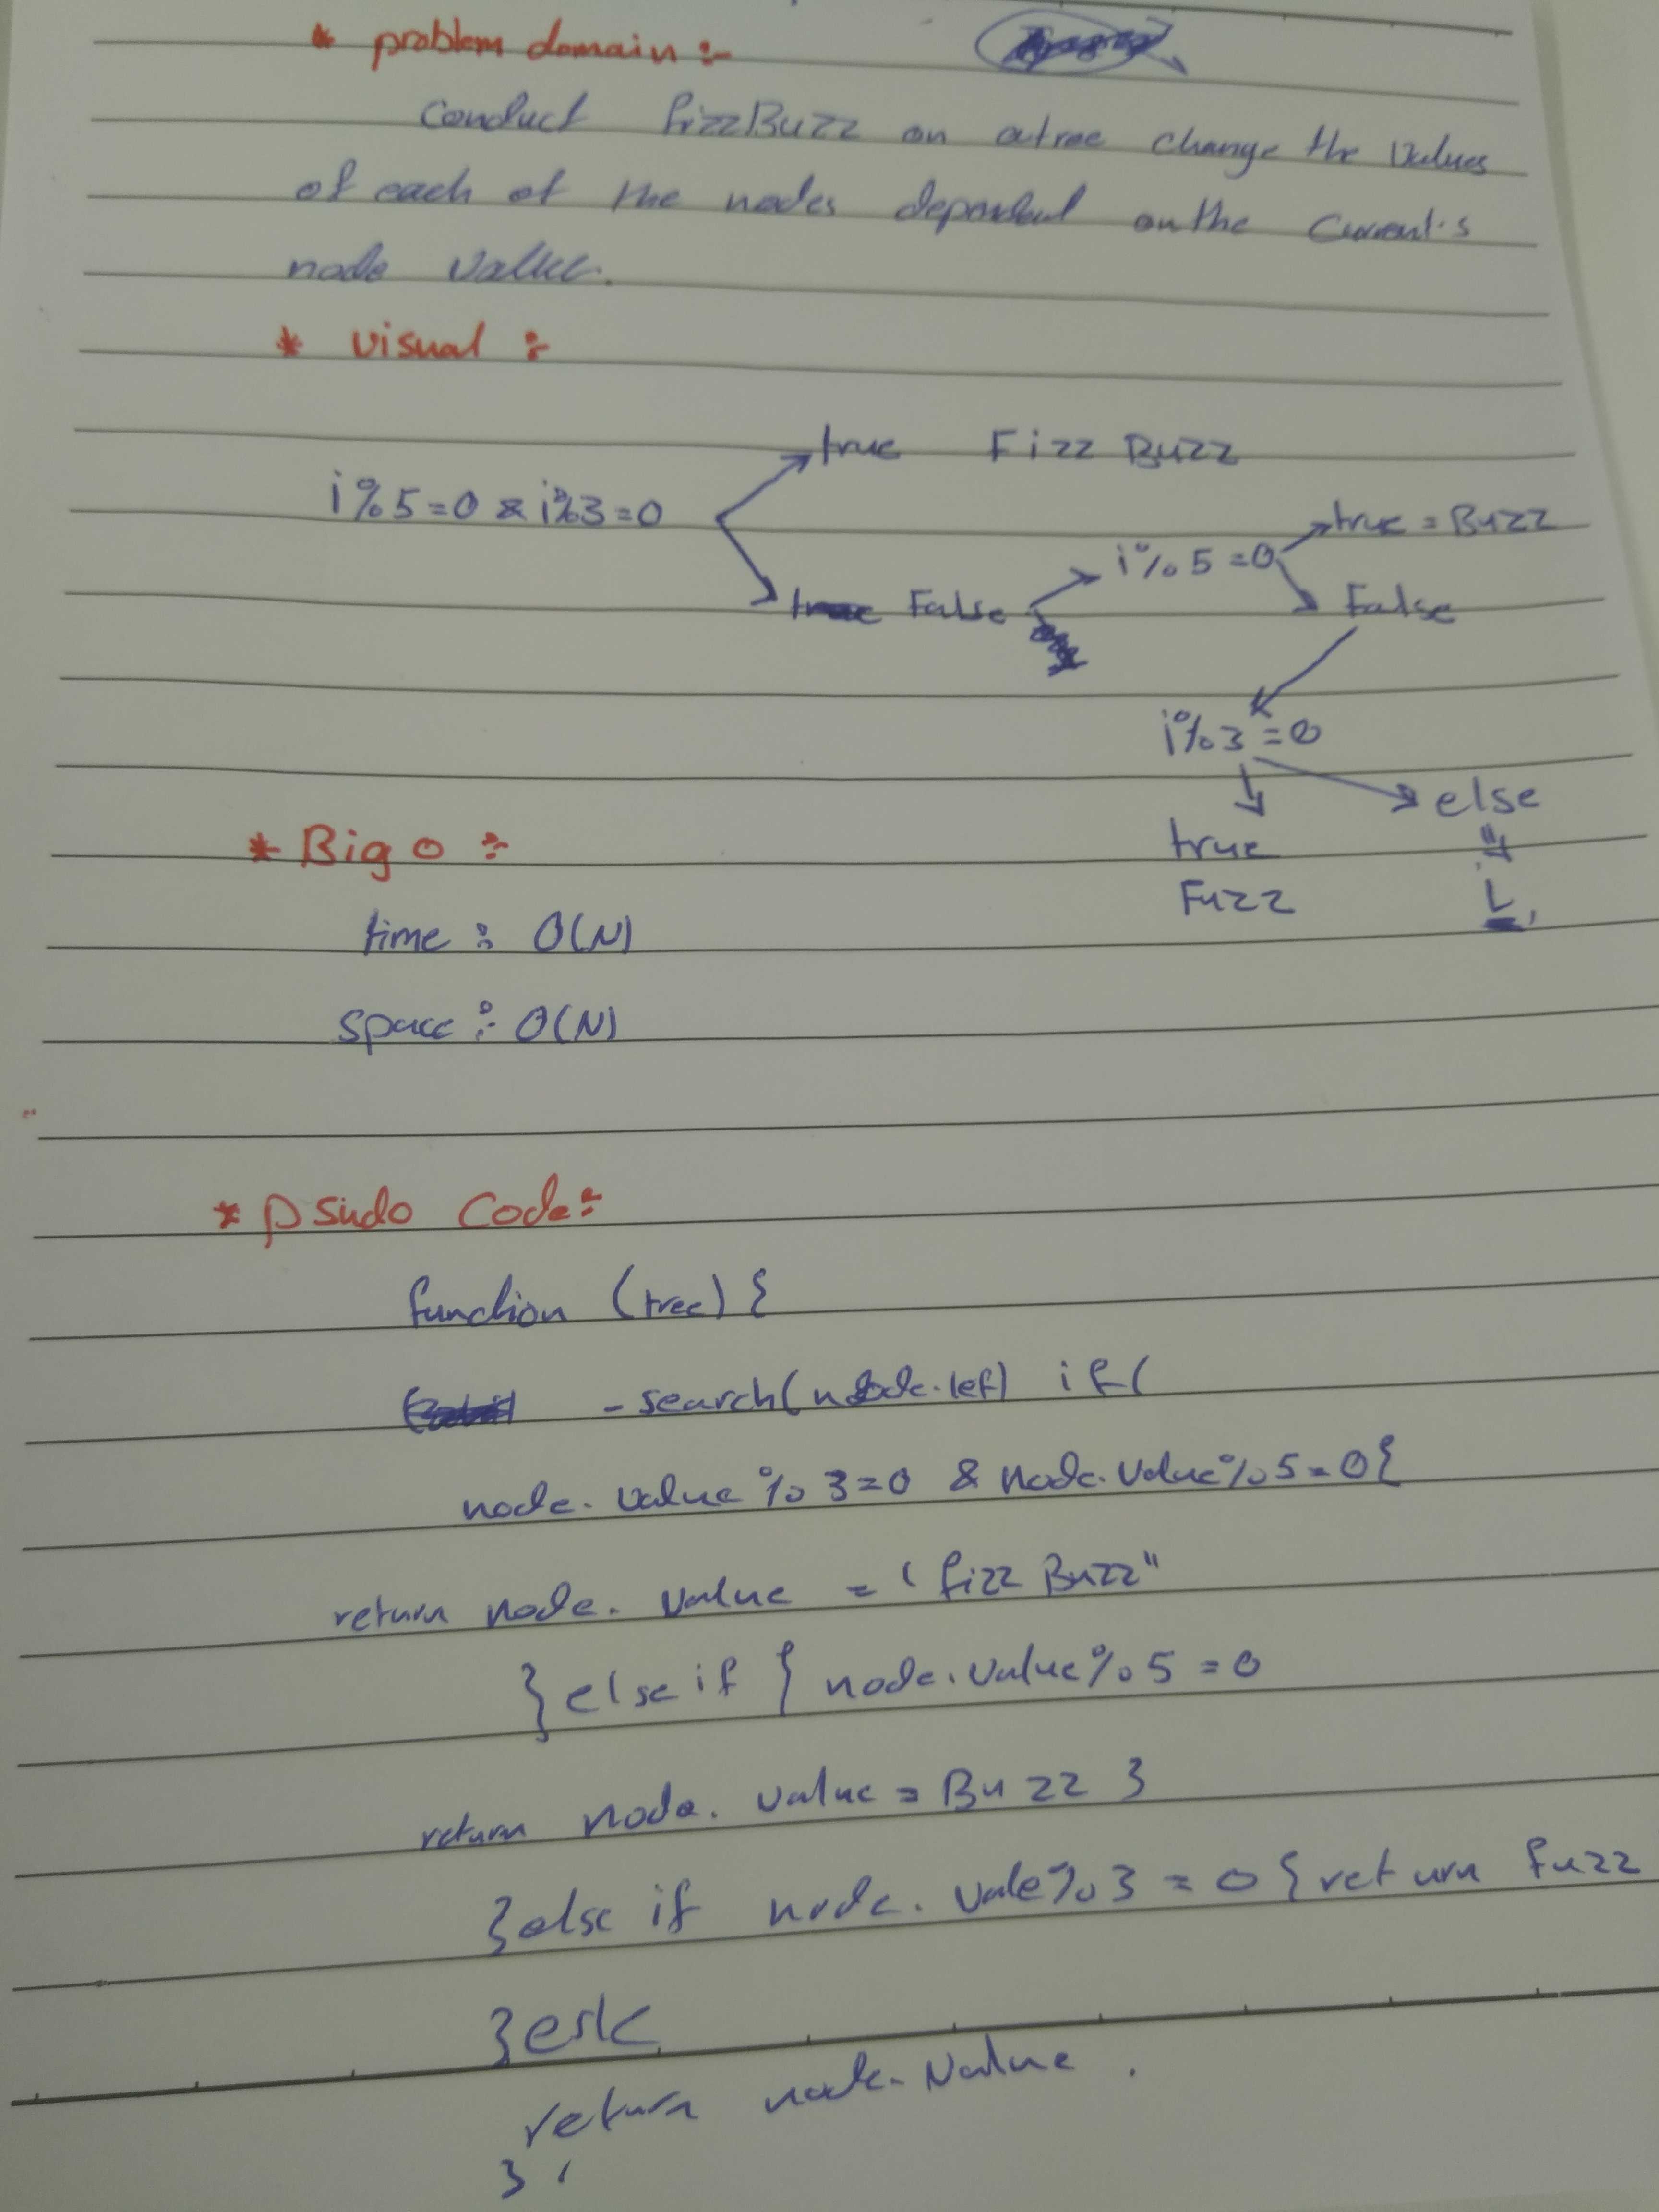 * problem domain :-
Conduct fizzBuzz on atree change the values
of each of the nodes dependent on the current's
node value.
* visual :-
true Fizz Buzz
i%5=0 & i%3=0
true = Buzz
i%5=0
False
False
i%3=0
else
true
Fuzz
i
* Big O :-
time : O(N)
space :- O(N)
* Psudo Code :-
function (tree) {
- search(node.lef) if(
node.value % 3=0 & node.value%5=0{
return node. value = "fizz Buzz"
} else if { node.value%5=0
return node. value = Buzz }
}else if node. vale%3 = 0 { return fuzz
}eslc
return node. Value .
}